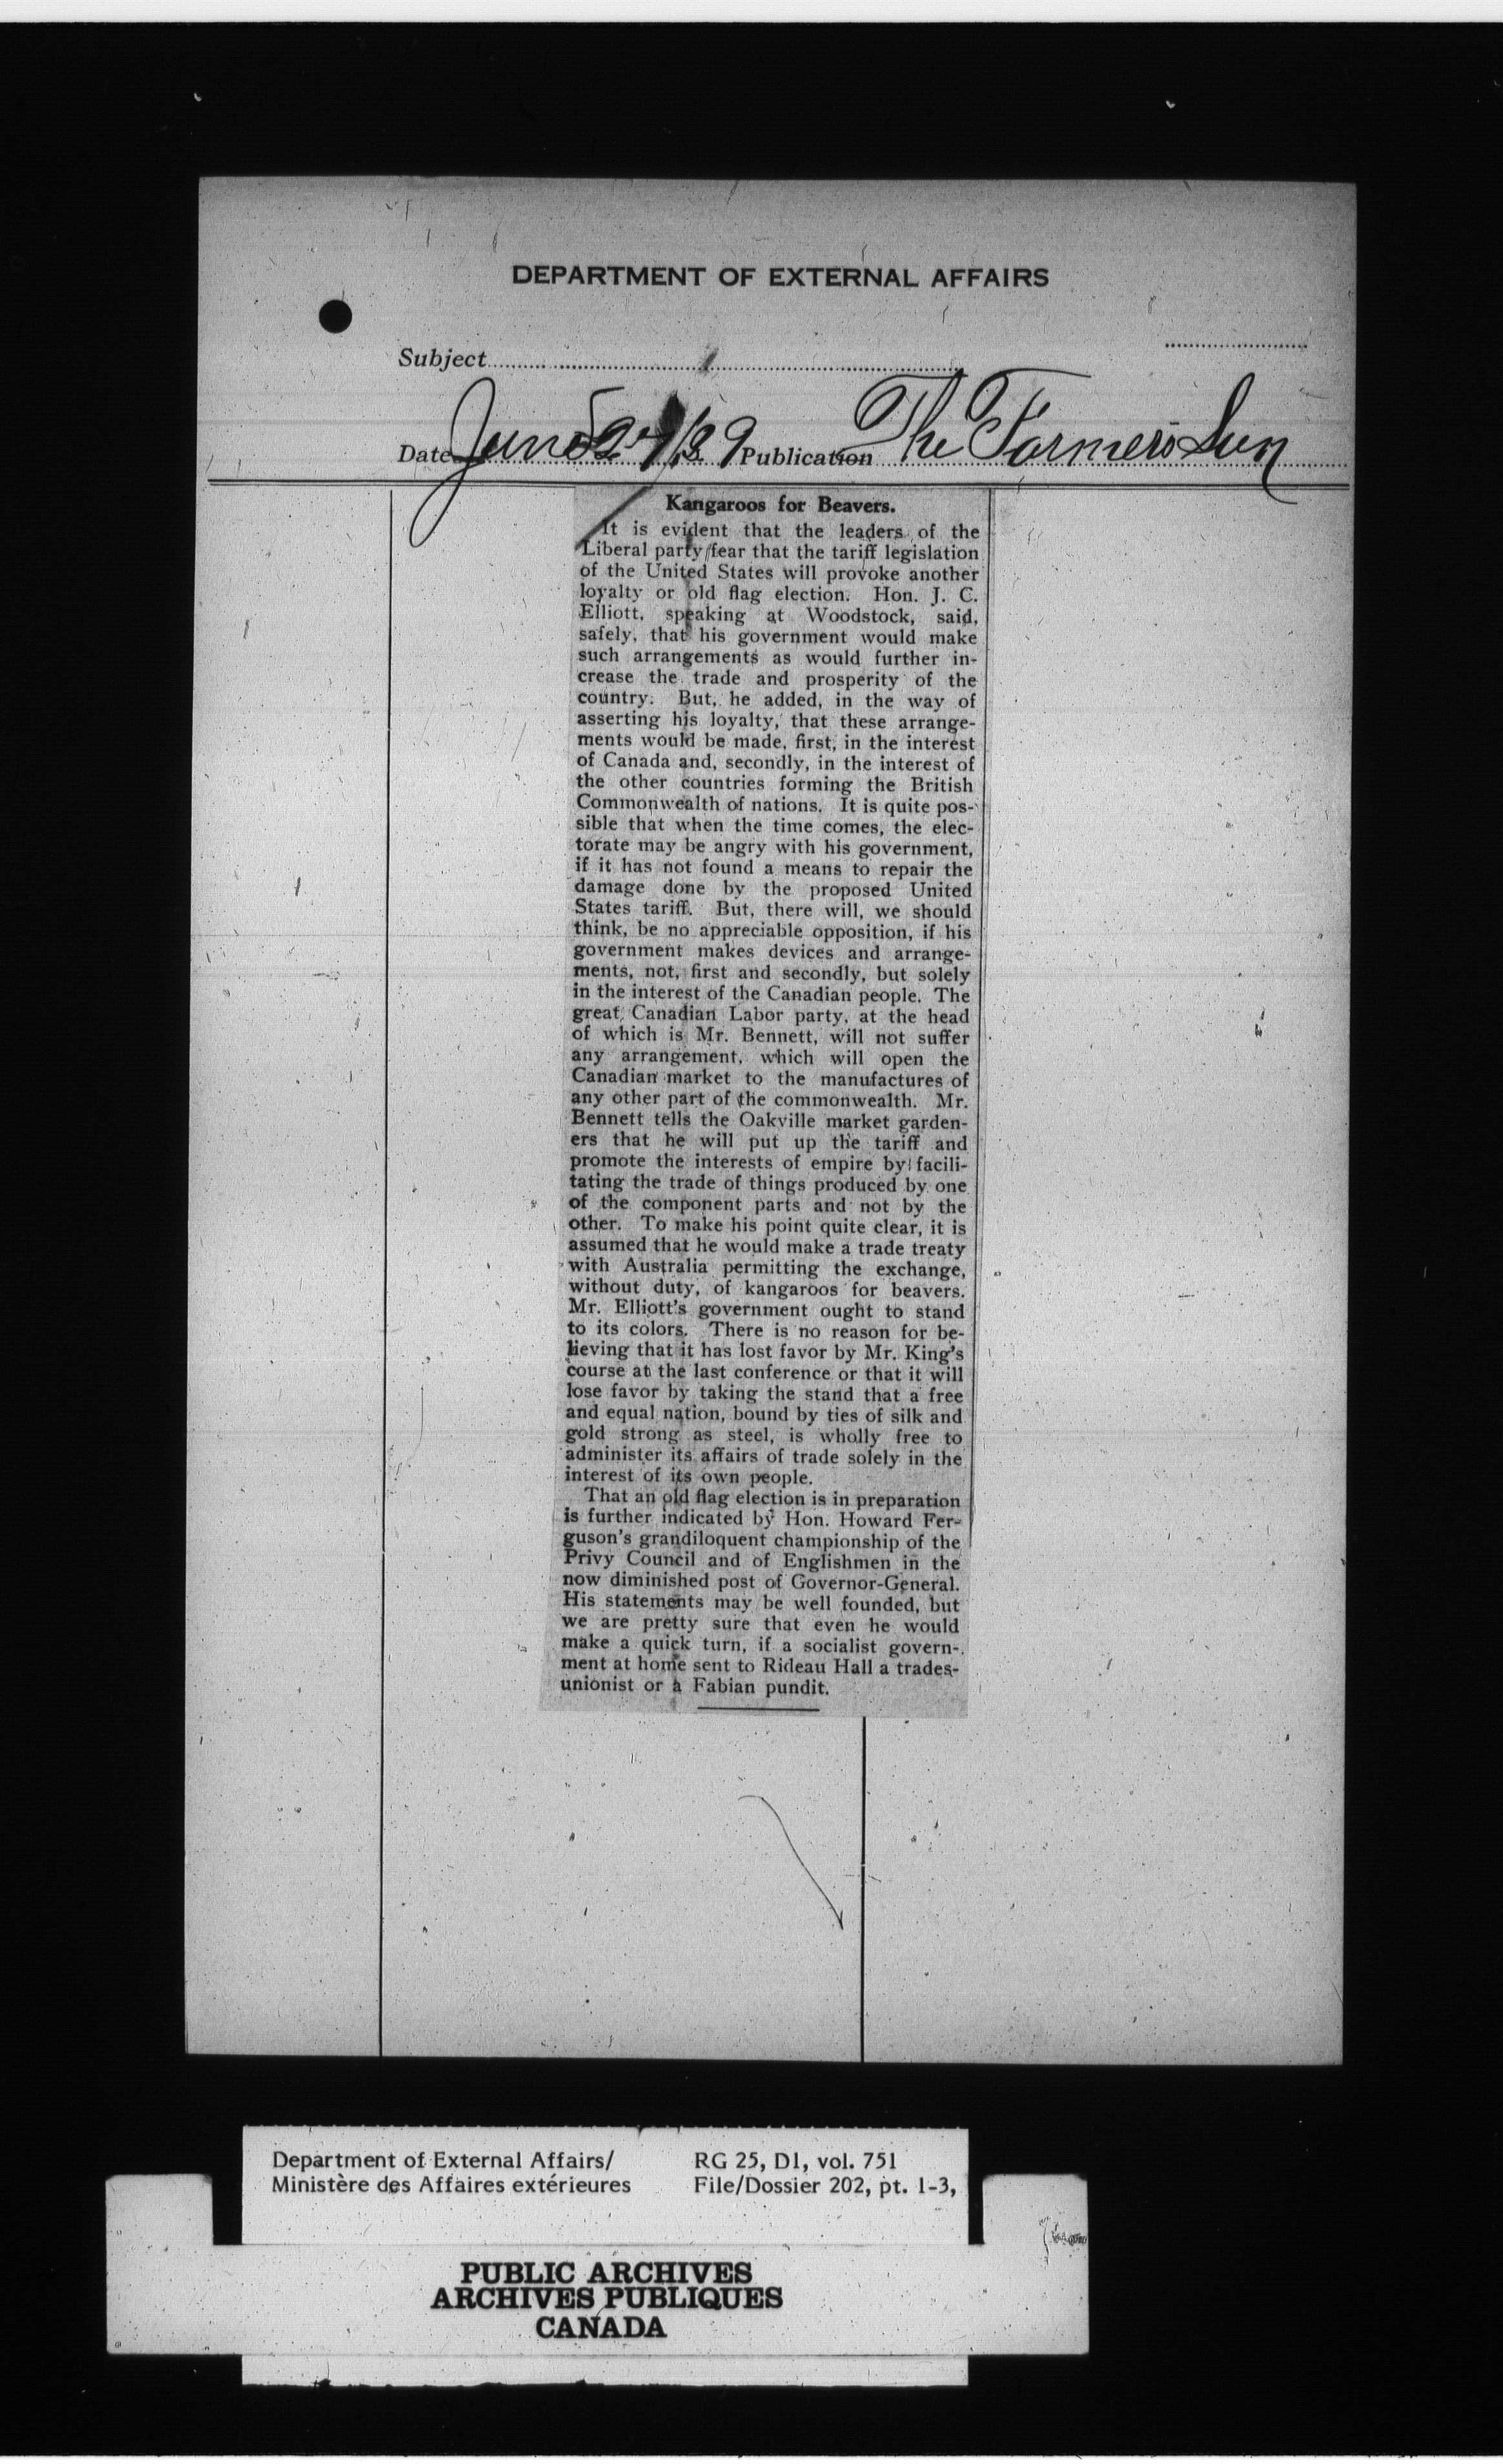 DEPARTMENT OF EXTERNAL AFFAIRS
Subject
Date June 27/29 Publication The Farmers Sun
Kangaroos for Beavers.
It is evident that the leaders of the
Liberal party fear that the tariff legislation
of the United States will provoke another
loyalty or old flag election. Hon. J. C.
Elliott, speaking at Woodstock, said,
safely, that his government would make
such arrangements as would further in-
crease the trade and prosperity of the
country. But, he added, in the way of
asserting his loyalty, that these arrange-
ments would be made, first, in the interest
of Canada and, secondly, in the interest of
the other countries forming the British
Commonwealth of nations. It is quite pos-
sible that when the time comes, the elec-
torate may be angry with his government,
if it has not found a means to repair the
damage done by the proposed United
States tariff. But, there will, we should
think, be no appreciable opposition, if his
government makes devices and arrange-
ments, not, first and secondly, but solely
in the interest of the Canadian people. The
great Canadian Labor party, at the head
of which is Mr. Bennett, will not suffer
any arrangement, which will open the
Canadian market to the manufactures of
any other part of the commonwealth. Mr.
Bennett tells the Oakville market garden-
ers that he will put up the tariff and
promote the interests of empire by facili-
tating the trade of things produced by one
of the component parts and not by the
other. To make his point quite clear, it is
assumed that he would make a trade treaty
with Australia permitting the exchange,
without duty, of kangaroos for beavers.
Mr. Elliott's government ought to stand
to its colors. There is no reason for be-
lieving that it has lost favor by Mr. King's
course at the last conference or that it will
lose favor by taking the stand that a free
and equal nation, bound by ties of silk and
gold strong as steel, is wholly free to
administer its affairs of trade solely in the
interest of its own people.
That an old flag election is in preparation
is further indicated by Hon. Howard Fer-
guson's grandiloquent championship of the
Privy Council and of Englishmen in the
now diminished post of Governor-General.
His statements may be well founded, but
we are pretty sure that even he would
make a quick turn, if a socialist govern-
ment at home sent to Rideau Hall a trades-
unionist or a Fabian pundit.
Department of External Affairs/ RG 25, D1, vol. 751
Ministère des Affaires extérieures File/Dossier 202, pt. 1-3,
PUBLIC ARCHIVES
ARCHIVES PUBLIQUES
CANADA